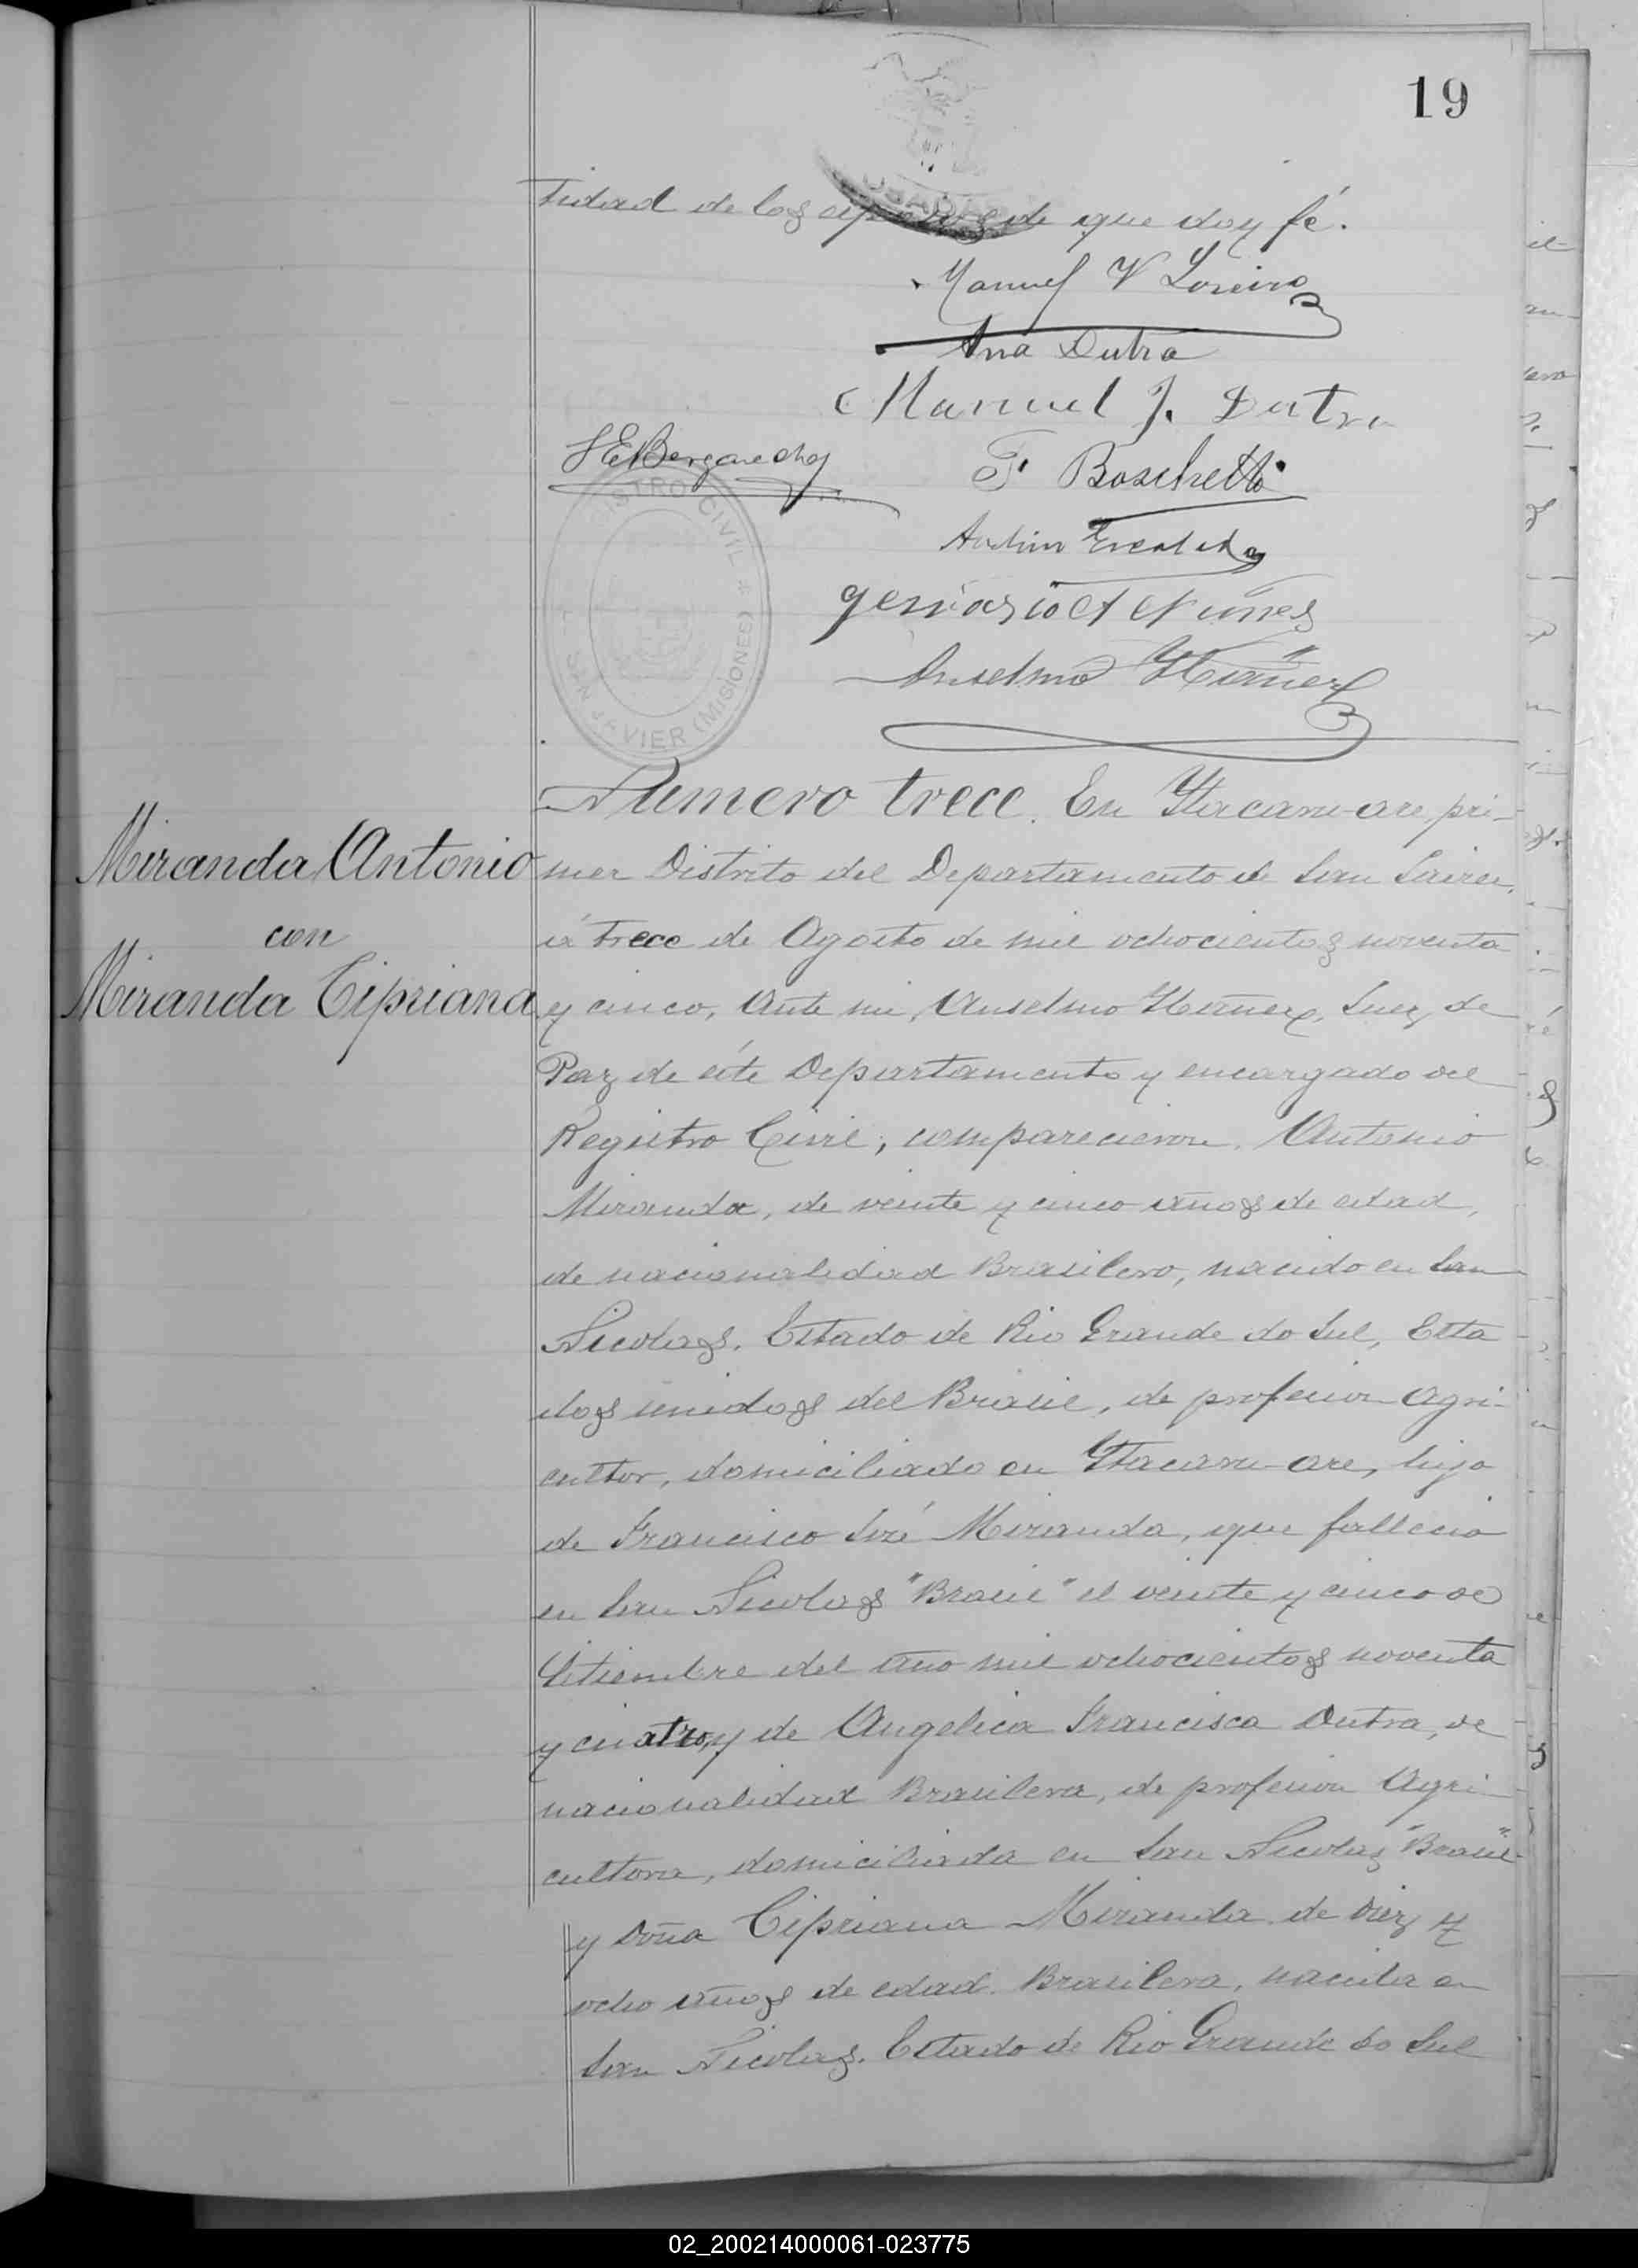 19
tidad de los esposos de que doy fé.
Manuel V Loreiro
Ana Dutra
Manuel J. Dutra
F. Boschetti
gervasio A Nunes
Anselmo Ybañez
REGISTRO CIVIL
SAN JAVIER (MISIONES)
Numero trece. En Ytacaru-are, pri-
Miranda Antonio
mer Distrito del Departamento de San Javier,
con
á trece de Agosto de mil ochocientos noventa
Miranda Cipriana
y cinco, Ante mi, Anselmo Ybañez, Juez de
Paz de éste Departamento y encargado del
Registro Civil, comparecieron. Antonio
Miranda, de veinte y cinco años de edad,
de nacionalidad Brasilero, nacido en San
Nicolas. Estado de Rio Grande do Sul, Esta
dos unidos del Brasil, de profesion Agri-
cultor, domiciliado en Ytacaru-are, hijo
de Francisco José Miranda, que fallecio
en San Nicolas "Brasil" el veinte y cinco de
Setiembre del año mil ochocientos noventa
y cuatro, y de Angelica Francisca Dutra, de
nacionalidad Brasilera, de profesion Agri-
cultora, domiciliada en San Nicolas "Brasil"
y Doña Cipriana Miranda de diez y
ocho años de edad. Brasilera, nacida en
San Nicolas. Estado de Rio Grande do Sul
02_200214000061-023775